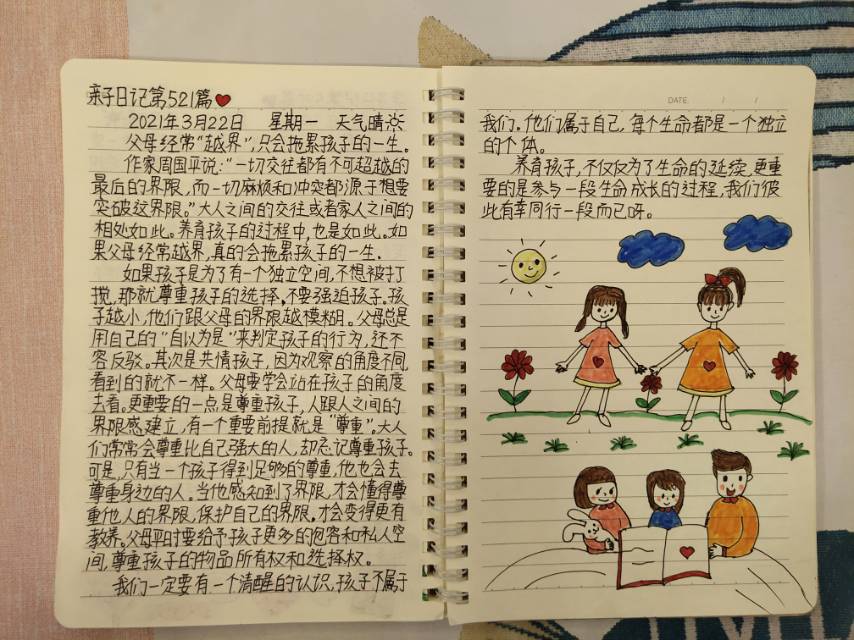 亲子日记第521篇
2021年3月22日 星期一 天气晴
父母经常"越界",只会拖累孩子的一生。
作家周国平说:"一切交往都有不可超越的
最后的界限,而一切麻烦和冲突都源于想要
突破这界限。"大人之间的交往或者家人之间的
相处如此。养育孩子的过程中,也是如此。如
果父母经常越界,真的会拖累孩子的一生.
如果孩子是为了有一个独立空间,不想被打
搅,那就尊重孩子的选择。不要强迫孩子。孩
子越小,他们跟父母的界限越模糊。父母总是
用自己的"自以为是"来判定孩子的行为,还不
容反驳。其次是共情孩子,因为观察的角度不同,
看到的就不一样。父母要学会站在孩子的角度
去看。更重要的一点是尊重孩子,人跟人之间的
界限感建立,有一个重要前提就是"尊重"。大人
们常常会尊重比自己强大的人,却忘记尊重孩子。
可是,只有当一个孩子得到足够的尊重,他也会去
尊重身边的人。当他感知到了界限,才会懂得尊
重他人的界限,保护自己的界限。才会变得更有
教养。父母平时要给予孩子更多的包容和私人空
间,尊重孩子的物品所有权和选择权。
我们一定要有一个清醒的认识,孩子不属于
DATE / /
我们。他们属于自己,每个生命都是一个独立
的个体。
养育孩子,不仅仅为了生命的延续,更重
要的是参与一段生命成长的过程,我们彼
此有幸同行一段而已呀。